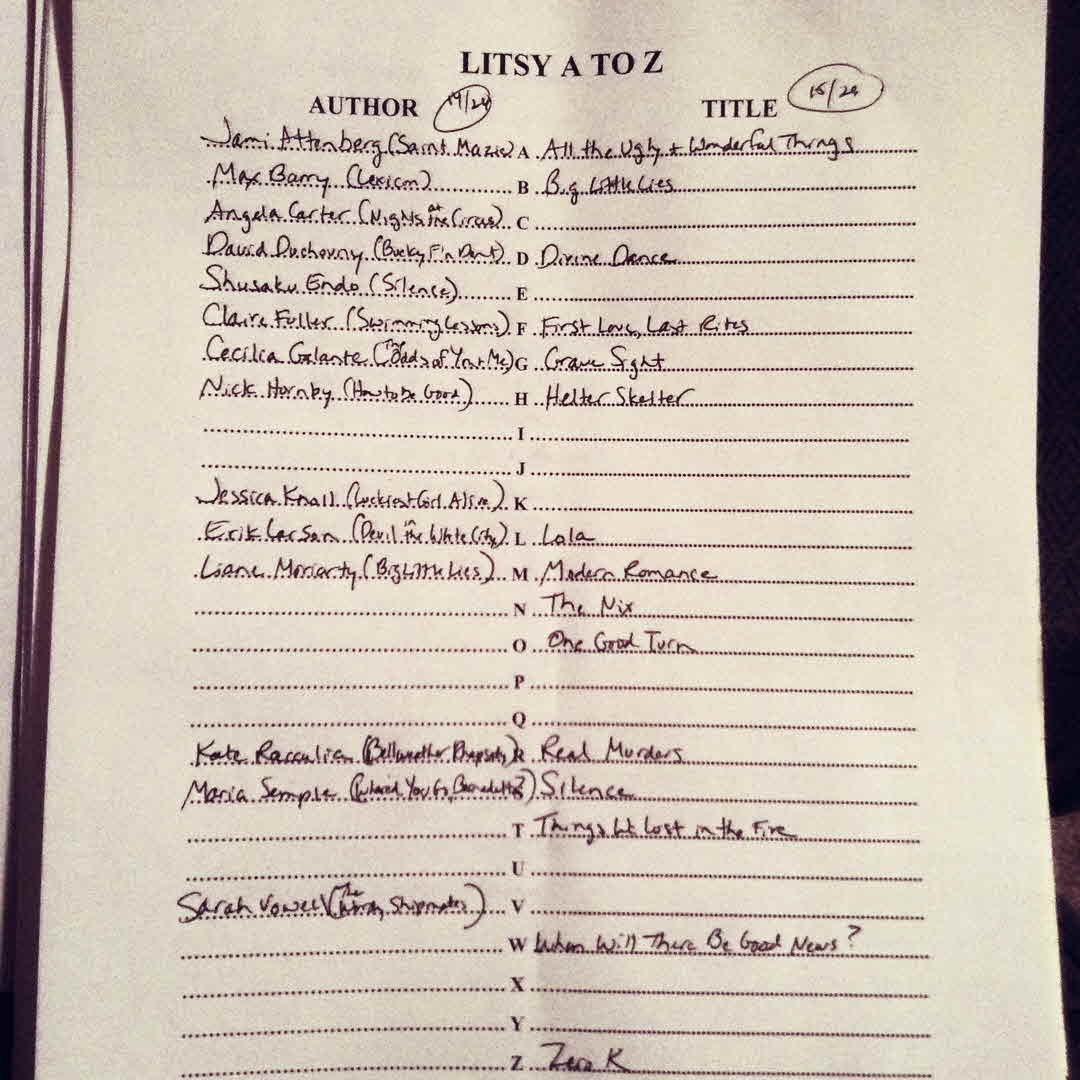 LITSY A TO Z
AUTHOR 19/24 TITLE 15/24
Jami Attenberg (Saint Mazie) A All the Ugly + Wonderful Things
Max Barry (Lexicon) B Big Little Lies
Angela Carter (Nights at the Circus) C
David Duchovny (Bucky F'n Dent) D Divine Dance
Shusaku Endo (Silence) E
Claire Fuller (Swimming Lessons) F First Love, Last Rites
Cecilia Galante (The Odds of You + Me) G Grave Sight
Nick Hornby (How to be Good) H Helter Skelter
I
J
Jessica Knoll (Luckiest Girl Alive) K
Erik Larson (Devil in the White City) L Lola
Liane Moriarty (Big Little Lies) M Modern Romance
N The Nix
O One Good Turn
P
Q
Kate Racculia (Bellweather Rhapsody) R Real Murders
Maria Semple (Where'd You Go, Bernadette?) Silence
T Things We Lost in the Fire
U
Sarah Vowell (The Wordy Shipmates) V
W When Will There Be Good News?
X
Y
Z Zero K